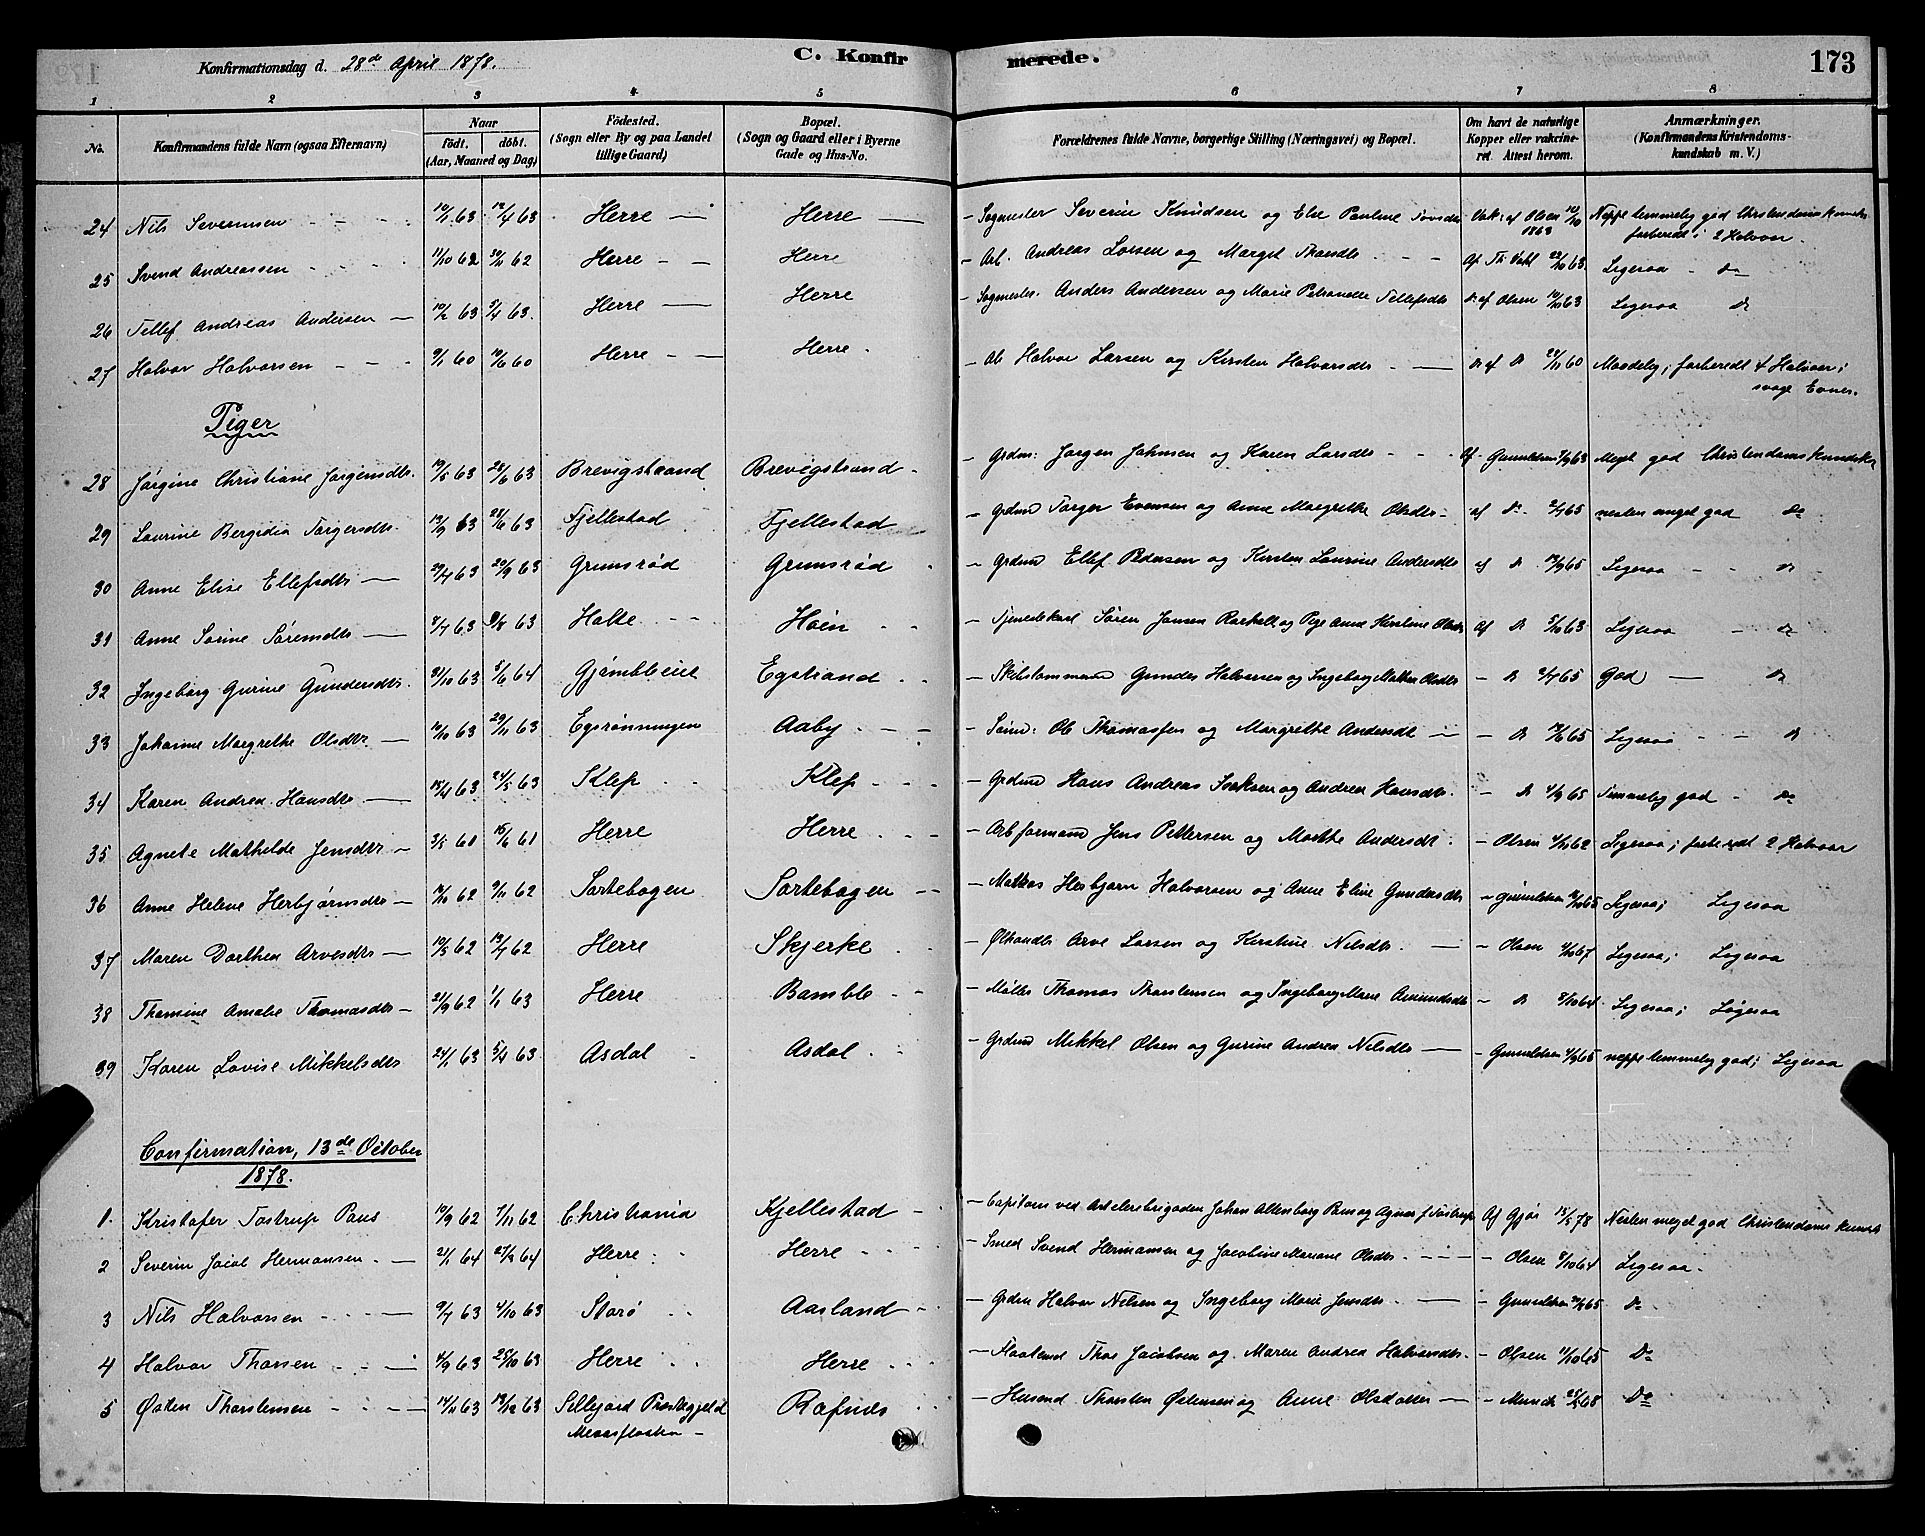 Konfirmationsdag d. 28de April 1878. C. Konfirmerede. 173
1 2 3 4 5 6 7 8
No. Konfirmandens fulde Navn (ogsaa Efternavn) Naar födt. döbt. (Aar, Maaned og Dag) Födested. (Sogn eller By og paa Landet tillige Gaard) Bopæl. (Sogn og Gaard eller i Byerne Gade og Hus-No. Forældrenes fulde Navne, borgerlige Stilling (Næringsvei) og Bopæl. Om havt de naturlige Kopper eller vakcineret. Attest herom. Anmærkninger. (Konfirmandens Kristendomskundskab m. V.)
24 Nils Severinsen 10/1 63 12/4 63 Herre Herre Severin Knudsen og Else Pauline Vak: af Olsen 1863 Neppe temmelig god Christendoms forberedt i 2 Halvaar.
25 Svend Andreassen 11/10 62 30/11 62 Herre Herre Arb. Andreas Larsen og Marget Af Th. Vahl 63. Ligesaa do
26 Tellef Andreas Andersen 10/2 63 5/4 63. Herre Herre Anders Andersen og Marie Petronelle Tellefsdtr do af Olsen 63 Ligesaa do
27 Halvor Halvorsen 9/1 60 10/6 60 Herre Herre. Arb Halvor Larsen og Kirsten Halvorsdtr do af do 60 Maadelig, forberedt 4 Halvaar; svage Evner.
Piger
28 Jørgine Christiane Jørgensdtr. 19/5 63 28/6 63 Brevigstrand Brevigstrand Grdm: Jørgen Johnsen og Karen Larsdtr Af Gunnildsen 63 Meget god Christendoms Kundskab
29 Laurine Bergidia Torgersdtr. 63 28/6 63 Fjellestad Fjellestad Grdmd Torger Evensen og Anne Margrethe Olsdtr af do 65 nesten meget god do
30 Anne Elise Ellefsdtr 29/7 63 20/9 63 Grumsrød Grumsrød Grdmd Ellef Pedersen og Kirsten Laurine Andersdtr af do 65 Ligesaa do
31 Anne Sørine Sørensdtr 63 63 Holte Høen Tjenestekarl Søren Jansen og Pige Anne Kirstine Olsdtr Af do 63 Ligesaa do
32 Ingeborg Gurine Gundersdtr. 31/10 63 5/6 64 Gjømbleeiet Egstrand Gunder Halvorsen og Ingeborg Olsdtr do 65 God do
33 Johanne Margrethe Olsdtr 63 29/11 63 Egsrønningen Aaby Sømd: Ole Thomassen og Margrethe Andersdt do 65 Ligesaa do
34 Karen Andrea Hansdtr 63 24/5 63 Klep Klep Grdmd Hans Andreas Isaksen og Andrea Hansdtr. do 65 Temmelig god do
35 Agnete Mathilde Jensdtr 3/5 61 16/6 61 Herre Herre Arbformand Jens Pettersen og Marthe Andersdt. Olsen 62 Ligesaa; forberedt 2 Halvaar
36 Anne Helene Herbjørnsdtr 62 9/11 62 Sortebogen Sortebogen Matros Herbjørn Halvorsen og Anne Eline Gundersdtr Gunnildsen 65 Ligesaa; Ligesaa
37 Maren Dorthea Arvesdtr 19/5 62 13/7 62 Herre Skjerke Arve Larsen og Kirstine Nilsdtr. Olsen 67 Ligesaa; Ligesaa
38 Thomine Amalie Thomasdtr 21/9 62 1/1 63 Herre Bamble Møller Thomas Thorstensen og Ingeborg Marie Amundsdtr do 64 Ligesaa; Ligesaa
39 Karen Lovise Mikkelsdtr 24/1 63 5/4 63 Asdal Asdal Grdmd Mikkel Olsen og Gurine Andrea Nilsdtr Gunnildsen 65 neppe temmelig god; Ligesaa
Confirmation, 13de October 1878.
1. Kristofer Tostrup Paus 10/9 62 7/11 62 Christiania Kjellestad Capitain ved Artelleribrigaden Johan Altenborg Paus og Agnes f Tostrup Af Gjør 78 Nesten meget god Christendoms kunds
2 Severin Jacob Hermansen 2/1 64 27/3 64 Herre Herre Smed Svend Hermansen og Jacobine Mariane Olsdtr. Olsen 8/10 64 Ligesaa.
3 Nils Halvorsen 9/7 63 4/10 63 Storø Aasland Grdm Halvor Nilsen og Ingeborg Marie Jensdtr. Gunnildsen 65 Do
4 Halvor Thorsen 4/9 63 25/10 63 Herre Herre Thor Jacobsen og Maren Andrea Halvorsdtr. Olsen 11/10 65 Do
5 Østen Thorstensen 14/11 63 13/12 63 Sillejord Præstegjeld Rafnes Husmd Thorsten Østensen og Anne Olsdatter Munch 68 Do